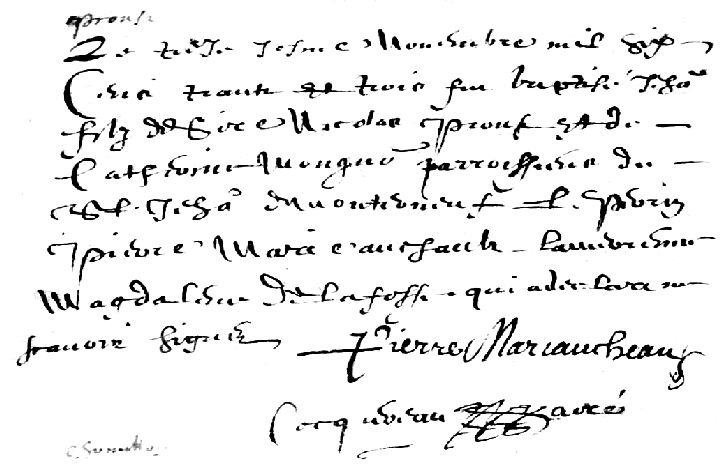 proust
Le treze iesme Novembre mil six
Cens trante et trois fut baptisé Jehā
filz de Sire Nicolas Proust et de
Catherine parroissiens de
St. Jehā de Montierneuf Le Parin
Pierre Mariauchault La merenne
Magdelene de Lafosse qui a declare ne
scavoir signer Pierre Mariaucheau
Cocquereau